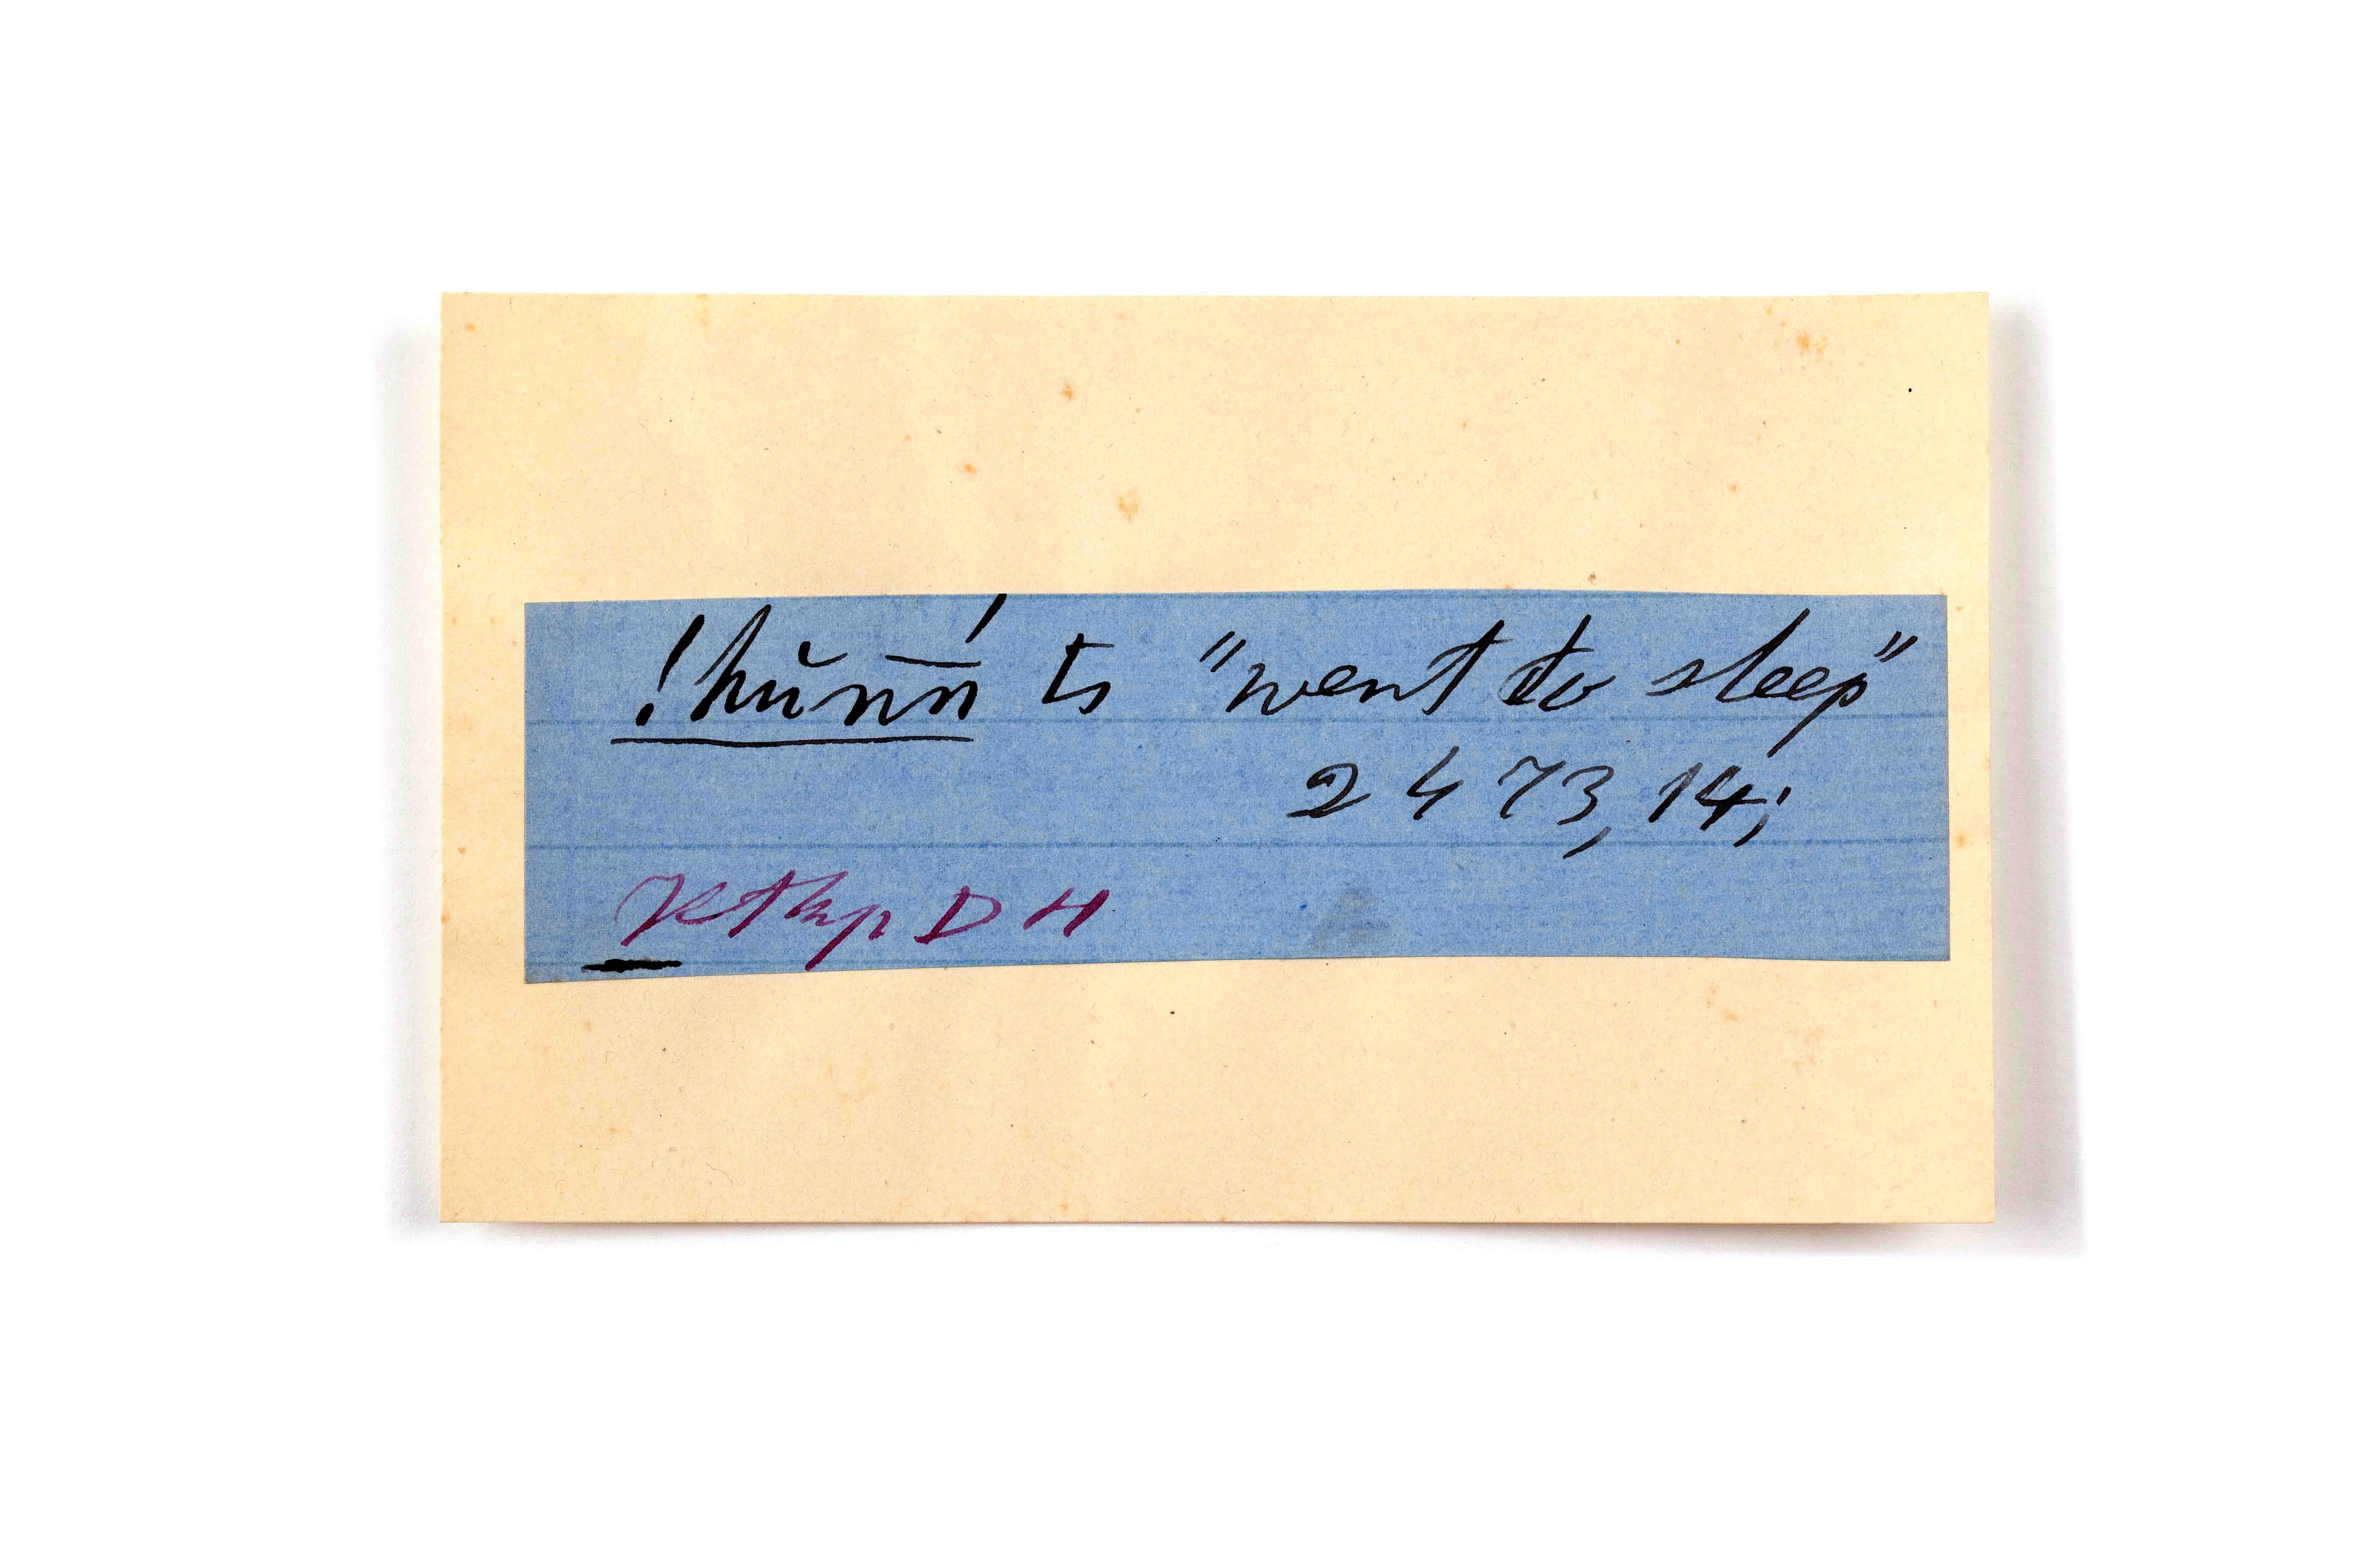 !hŭn̄ń ts "went to sleep"
2473, 14;
D H